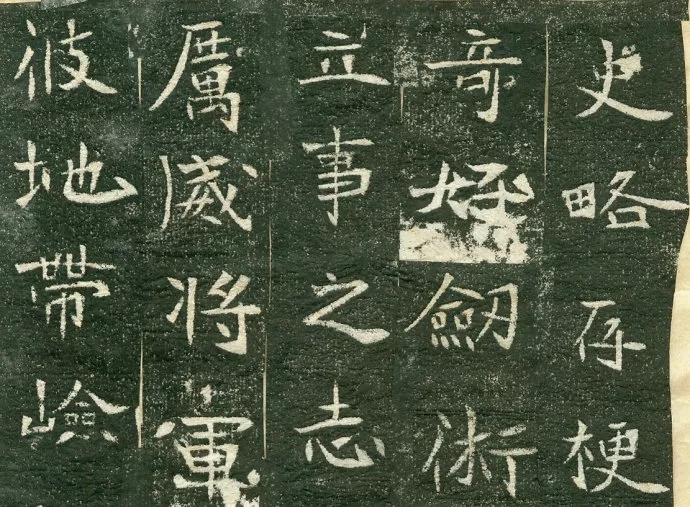 史略存梗
奇好劒術
立事之志
厲威將軍
彼地帶嶮